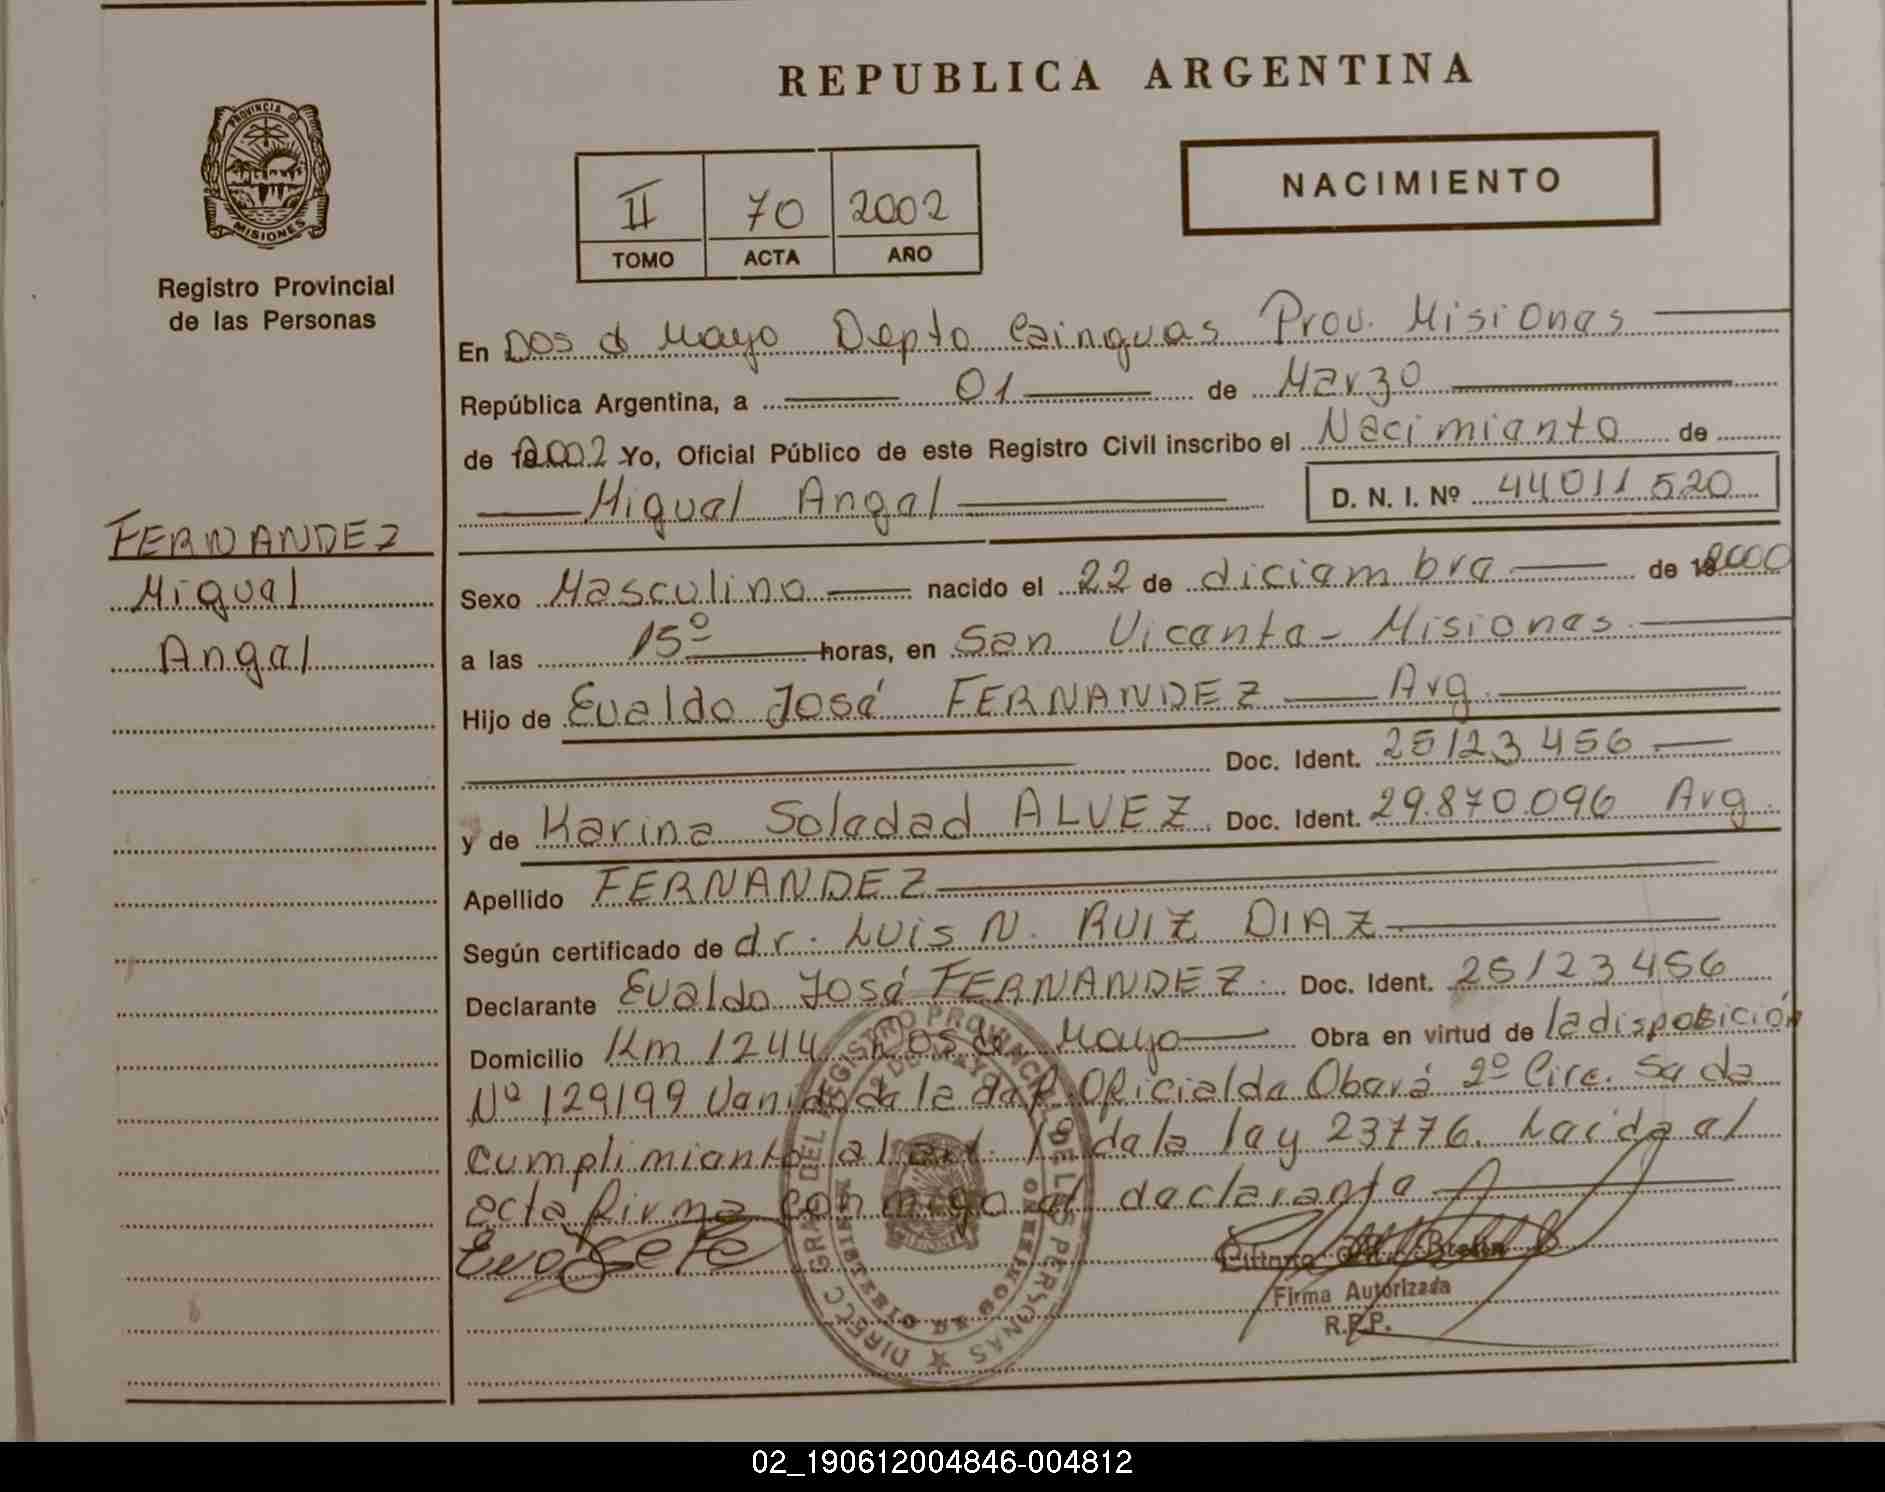 REPUBLICA ARGENTINA
PROVINCIA DE
MISIONES
Registro Provincial
de las Personas
II 70 2002
TOMO ACTA AÑO
NACIMIENTO
FERNANDEZ
Miguel
Angel
En Dos de Mayo Depto Cainguas Prov. Misiones
República Argentina, a 01 de Marzo
de 2002 Yo, Oficial Público de este Registro Civil inscribo el Nacimiento de
Miguel Angel D. N. I. Nº 44011520
Sexo Masculino nacido el 22 de diciembre de 2000
a las 15º horas, en San Vicente - Misiones
Hijo de Evaldo José FERNANDEZ Arg.
Doc. Ident. 25123456
y de Karina Soledad ALVEZ Doc. Ident. 29.870.096 Arg.
Apellido FERNANDEZ
Según certificado de dr. Luis N. RUIZ DIAZ
Declarante Evaldo José FERNANDEZ. Doc. Ident. 25123456
Domicilio Km 1244 Dos de Mayo Obra en virtud de la disposición
Nº 129/99 Venido de la Oficial de Oberá 2º Circ. Se da
cumplimiento al art. 1º de la ley 23776. Leida el
acta firma conmigo el declarante
Firma Autorizada
R.P.P.
DIRECC. GRAL. DEL REGISTRO PROVINCIAL DE LAS PERSONAS
DOS DE MAYO
MINISTERIO DE GOBIERNO
02_190612004846-004812